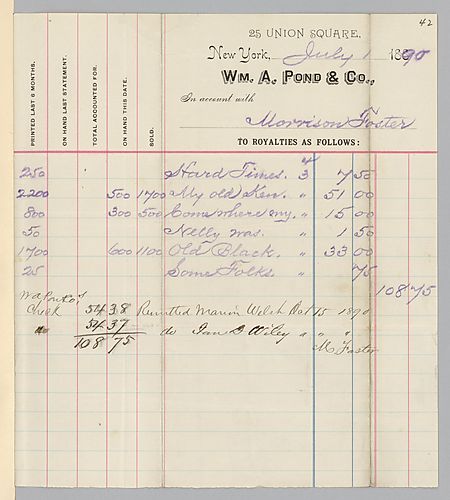 42
25 UNION SQUARE,
New York, July 1 1890
WM. A. POND & CO.,
In account with
Morrison Foster
PRINTED LAST 6 MONTHS.
ON HAND LAST STATEMENT.
TOTAL ACCOUNTED FOR.
ON HAND THIS DATE.
SOLD.
TO ROYALTIES AS FOLLOWS:
250 Hard Times. 3 7 50
2200 500 1700 My old Ken. " 51 00
800 300 500 Come where my. " 15 00
50 Nelly was. " 1 50
1700 600 1100 Old Black. " 33 00
25 Some Folks " 75
108 75
Wm Pond
Check 54 38 Remitted Marion Welch Oct 15 1890
do 54 37 do Jane D Wiley " " "
108 75 M Foster